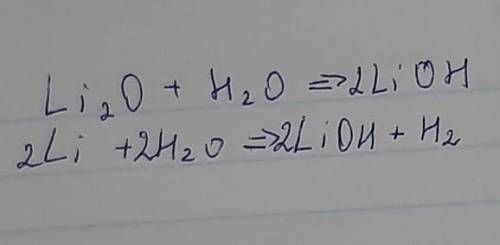 Li₂O + H₂O => 2LiOH
2Li + 2H₂O => 2LiOH + H₂